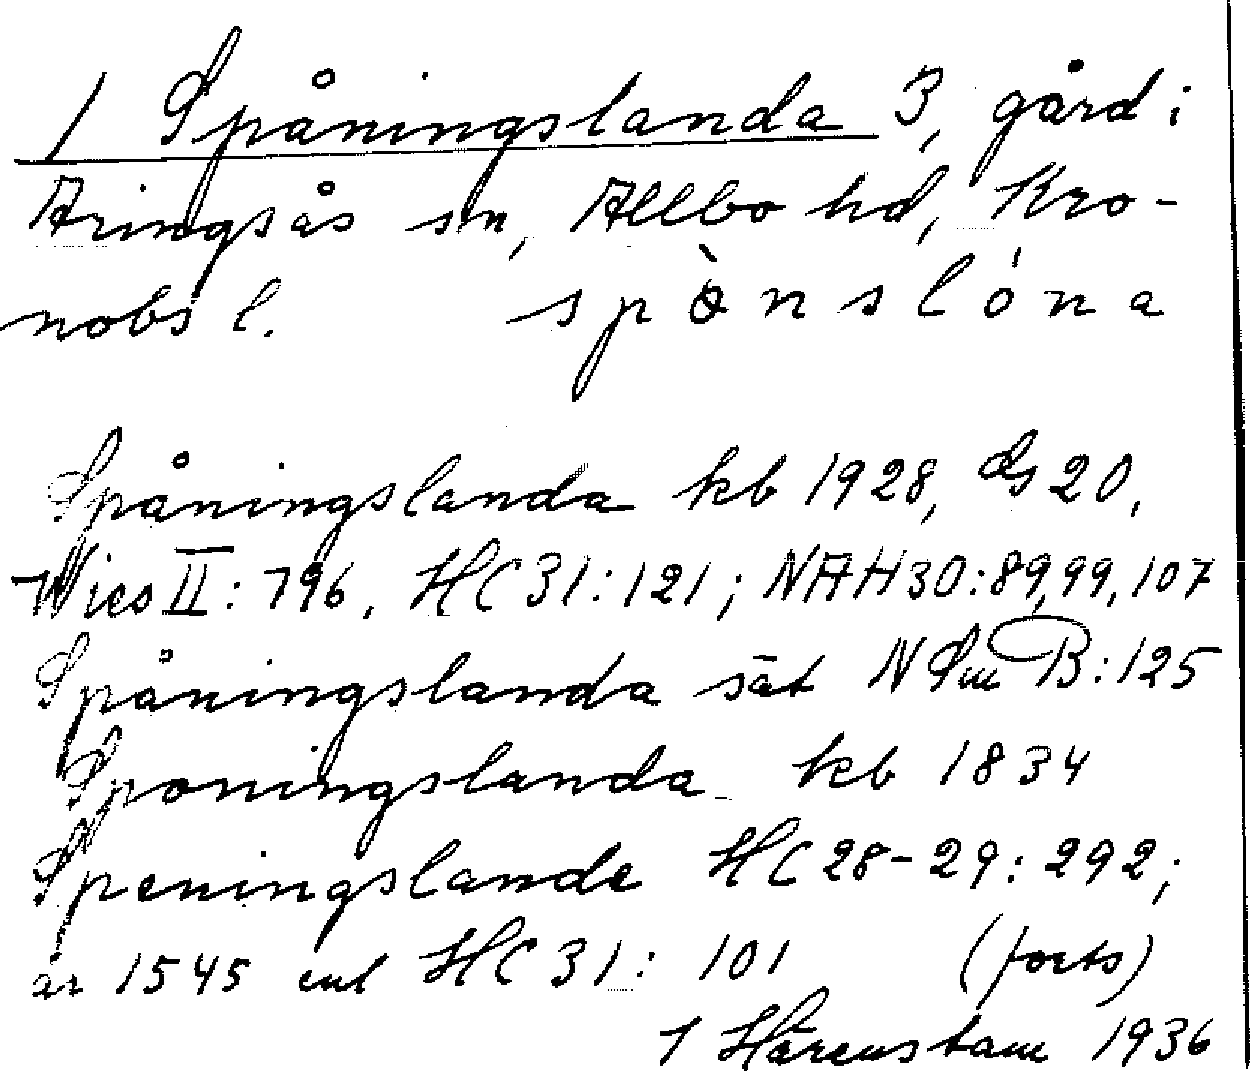 1 Spåningslanda 3, gård i
Aringsås sn, Allbo hd, Kro-
nobs l. spònslóna
Spåningslanda kb 1928, GS 20,
Wies II: 796, HC 31: 121; NAH 30: 89, 99, 107
Spåningslanda sät N Sm B: 125
Sponingslanda kb 1834
Speningslande HC 28-29: 292;
år 1545 enl HC 31: 101 (forts)
1 Härenstam 1936